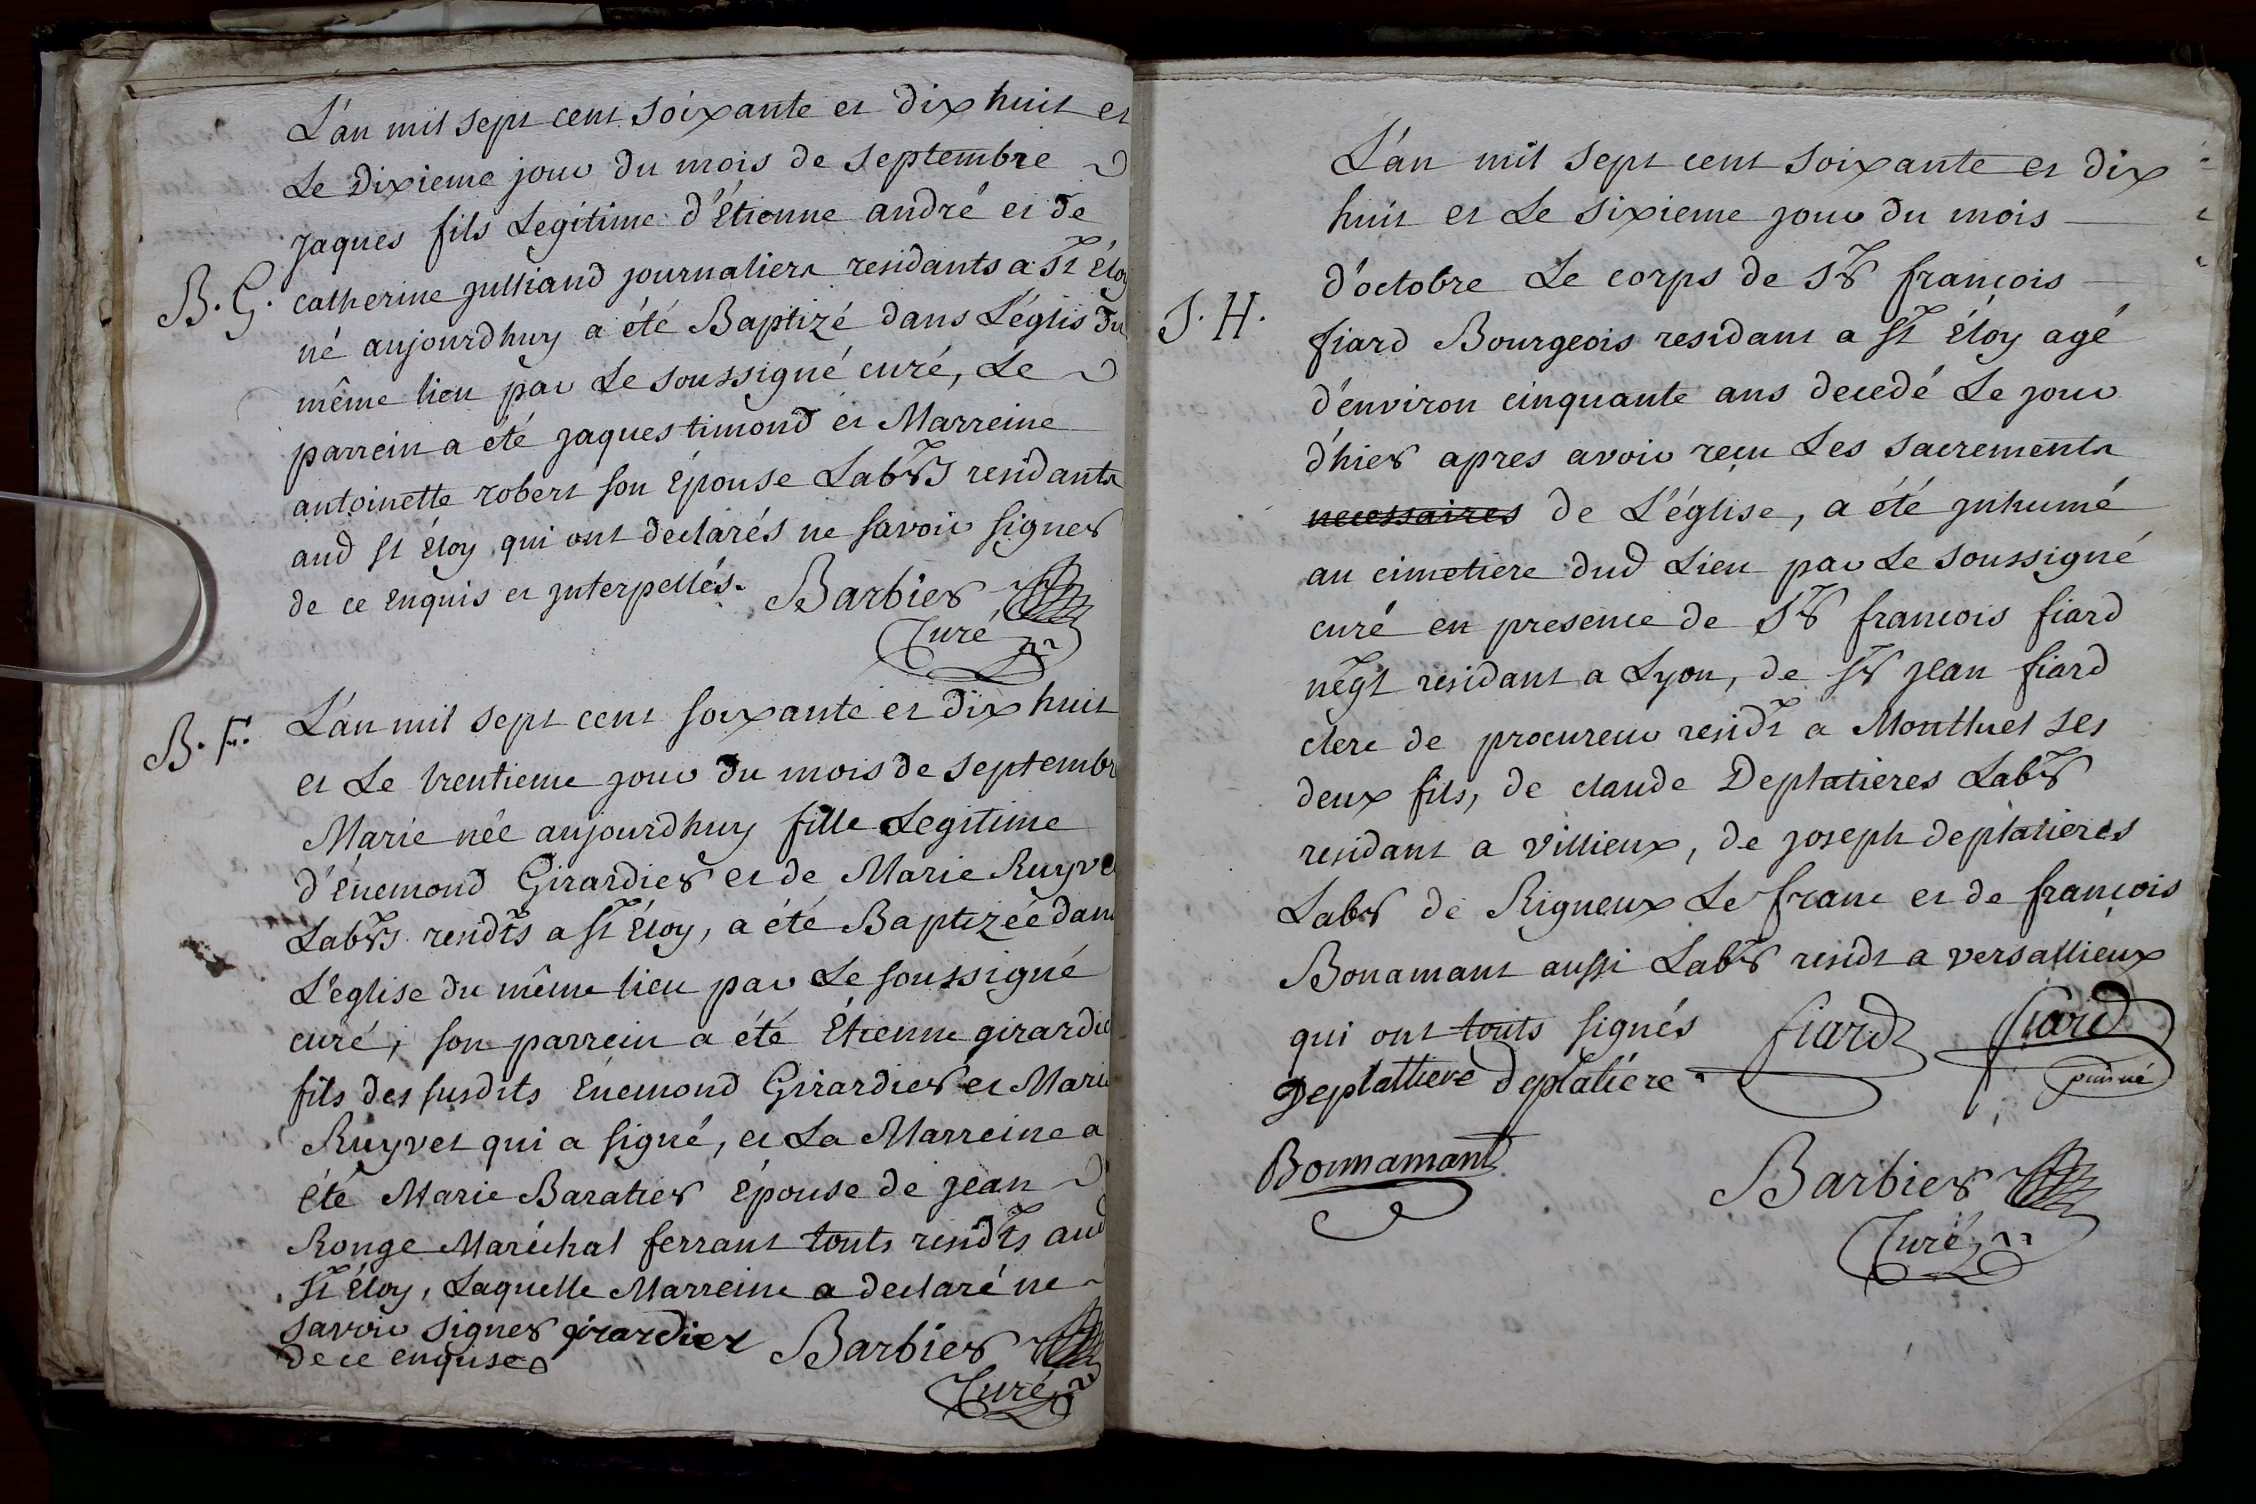 L'an mil sept cent soixante et dix huit et
Le Dixieme jour du mois de septembre
jaques fils Legitime d'Etienne andré et de
B. G. catherine julliand journaliers residants a St Éloy
né aujourdhuy a été Baptizé dans L'églis du
même lieu par Le soussigné curé, Le
parrein a été jaques timond et Marreine
antoinette robert son Épouse Labrs residants
aud St Éloy qui ont declarés ne savoir signer
de ce enquis et interpellés. Barbier
Curé
B. F. L'an mil sept cent soixante et dix huit
et Le trentieme jour du mois de septembr
Marie née aujourdhuy fille Legitime
d'Énemond Girardier et de Marie Ruyve
Labrs residts a St Éloy, a été Baptizée dans
L'eglise du même lieu par Le soussigné
curé, son parrein a été Étienne girardie
fils des susdits Énemond Girardier et Marie
Ruyvet qui a signé, et La Marreine a
été Marie Baratier Épouse de jean
Ronge Maréchal ferrant touts residts aud
St Éloy, Laquelle Marreine a declaré ne
savoir signer girardier Barbier
de ce enquise
Curé
L'an mil sept cent soixante et dix
huit et Le sixieme jour du mois
d'octobre Le corps de Sr françois
S. H. fiard Bourgeois residant a St Éloy agé
d'environ cinquante ans decedé Le jour
d'hier apres avoir reçu Les sacrements
necessaires de L'église, a été inhumé
au cimetiere dud Lieu par Le soussigné
curé en presence de Sr francois fiard
negt residant a Lyon, de Sr jean fiard
clerc de procureur residt a Montluel ses
deux fils, de claude Deplatieres Labr
residant a villieux, de joseph deplatieres
Labr de Rigneux Le franc et de françois
Bonamant aussi Labr residt a versallieux
qui ont touts signés fiard fiard
puisné
Deplattiere deplatiére
Bonnamant
Barbier
Curé